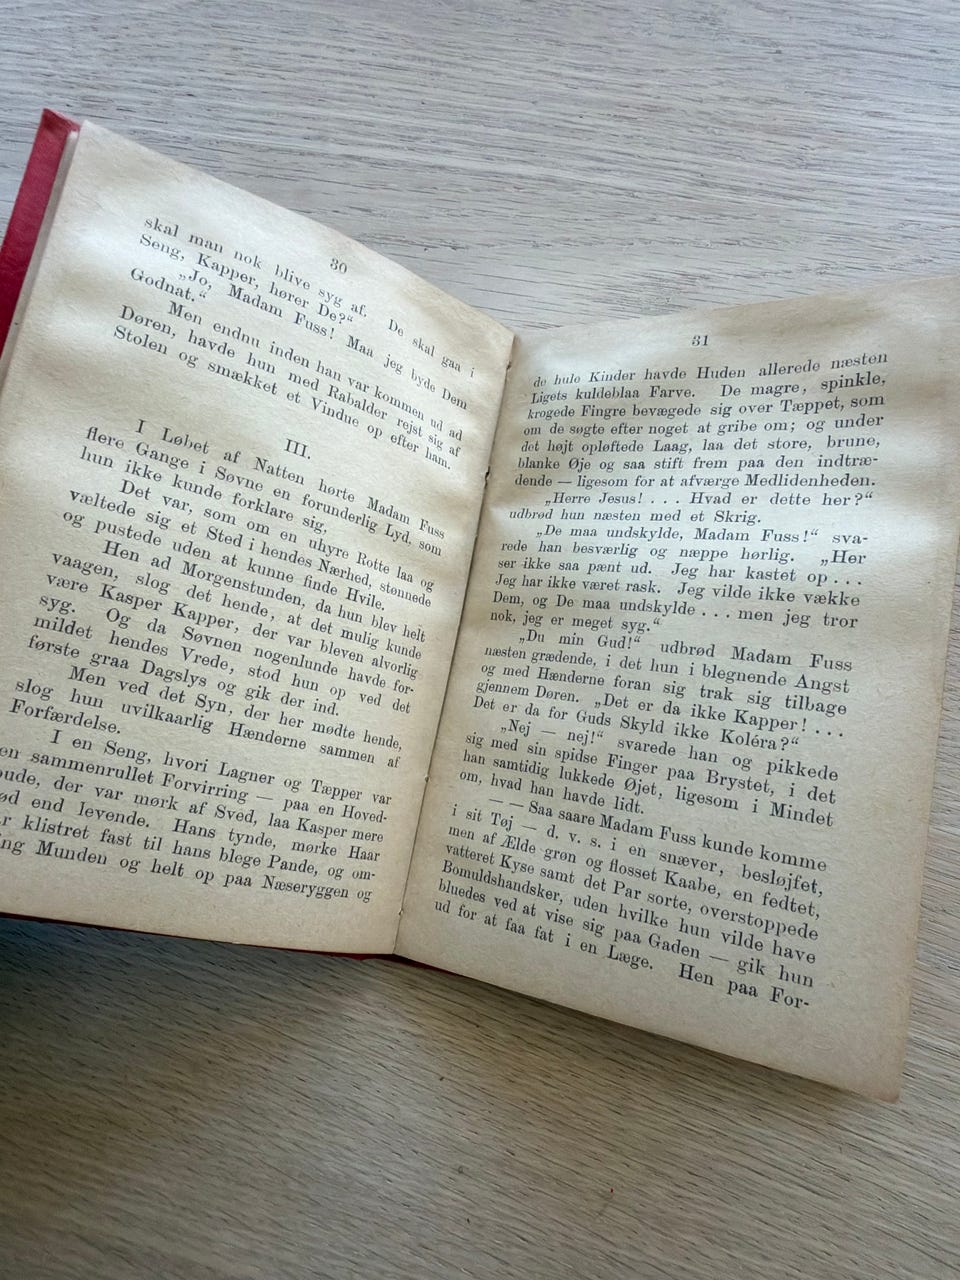 30
skal man nok blive syg af. De skal gaa i
Seng, Kapper, hører De?“
„Jo, Madam Fuss! Maa jeg byde Dem
Godnat.“
Men endnu inden han var kommen ud ad
Døren, havde hun med Rabalder rejst sig af
Stolen og smækket et Vindue op efter ham.
III.
I Løbet af Natten hørte Madam Fuss
flere Gange i Søvne en forunderlig Lyd, som
hun ikke kunde forklare sig,
Det var, som om en uhyre Rotte laa og
væltede sig et Sted i hendes Nærhed, stønnede
og pustede uden at kunne finde Hvile.
Hen ad Morgenstunden, da hun blev helt
vaagen, slog det hende, at det mulig kunde
være Kasper Kapper, der var bleven alvorlig
syg. Og da Søvnen nogenlunde havde for-
mildet hendes Vrede, stod hun op ved det
første graa Dagslys og gik der ind.
Men ved det Syn, der her mødte hende,
slog hun uvilkaarlig Hænderne sammen af
Forfærdelse.
I en Seng, hvori Lagner og Tæpper var
en sammenrullet Forvirring — paa en Hoved-
pude, der var mørk af Sved, laa Kasper mere
død end levende. Hans tynde, mørke Haar
klistret fast til hans blege Pande, og om-
Munden og helt op paa Næseryggen og
31
de hule Kinder havde Huden allerede næsten
Ligets kuldeblaa Farve. De magre, spinkle,
krogede Fingre bevægede sig over Tæppet, som
om de søgte efter noget at gribe om; og under
det højt opløftede Laag, laa det store, brune,
blanke Øje og saa stift frem paa den indtræ-
dende — ligesom for at afværge Medlidenheden.
„Herre Jesus! . . . Hvad er dette her?“
udbrød hun næsten med et Skrig.
„De maa undskylde, Madam Fuss!“ sva-
rede han besværlig og næppe hørlig. „Her
ser ikke saa pænt ud. Jeg har kastet op . . .
Jeg har ikke været rask. Jeg vilde ikke vække
Dem, og De maa undskylde . . . men jeg tror
nok, jeg er meget syg.“
„Du min Gud!“ udbrød Madam Fuss
næsten grædende, i det hun i blegnende Angst
og med Hænderne foran sig trak sig tilbage
gjennem Døren. „Det er da ikke Kapper! . . .
Det er da for Guds Skyld ikke Koléra?“
„Nej — nej!“ svarede han og pikkede
sig med sin spidse Finger paa Brystet, i det
han samtidig lukkede Øjet, ligesom i Mindet
om, hvad han havde lidt.
— — Saa saare Madam Fuss kunde komme
i sit Tøj — d. v. s. i en snæver, besløjfet,
men af Ælde grøn og flosset Kaabe, en fedtet,
vatteret Kyse samt det Par sorte, overstoppede
Bomuldshandsker, uden hvilke hun vilde have
bluedes ved at vise sig paa Gaden — gik hun
ud for at faa fat i en Læge. Hen paa For-